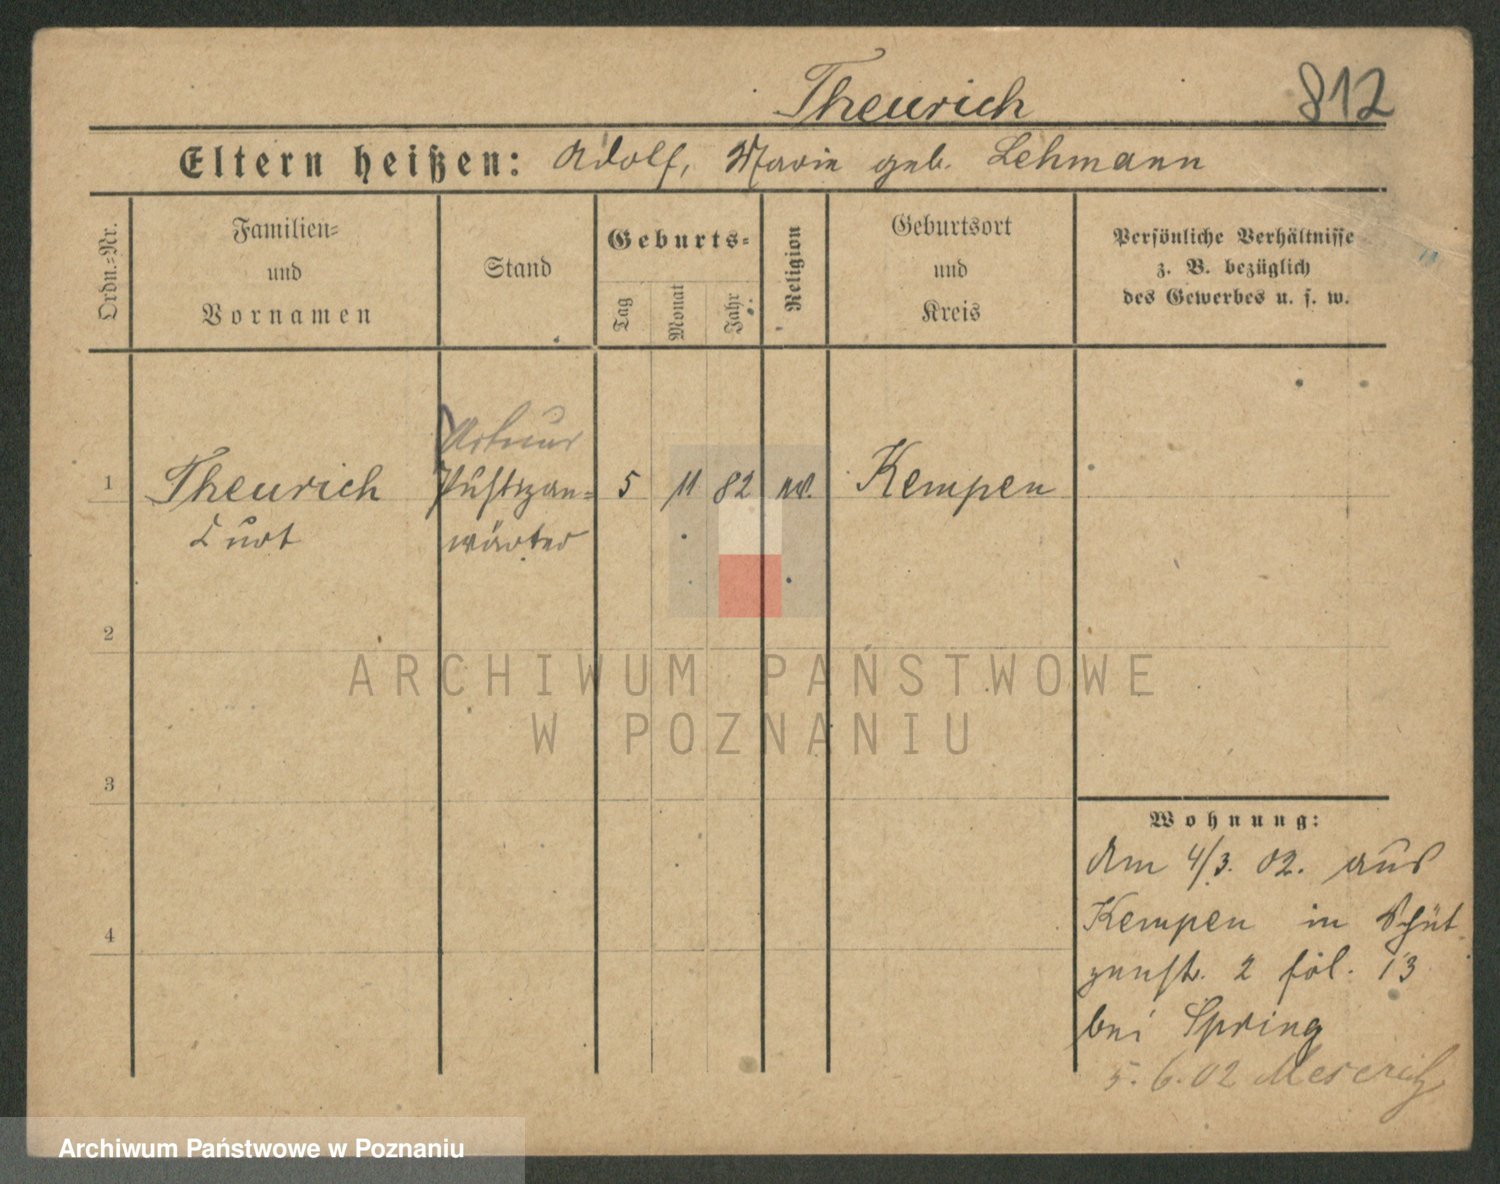 Theurich 812
Eltern heißen: Adolf, Marie geb. Lehmann
Ordn.-Nr.
Familien-
und
Vornamen
Stand
Geburts-
Tag
Monat
Jahr
Religion
Geburtsort
und
Kreis
Persönliche Verhältnisse
z. B. bezüglich
des Gewerbes u. s. w.
1 Theurich Justizan- 5 11 82 ev. Kempen
Curt wärter
2
ARCHIWUM PAŃSTWOWE
W POZNANIU
3
Wohnung:
Am 4/3. 02. aus
Kempen in Schüt
zenstr. 2 fol. 13
4
bei Spring
5. 6. 02 Meseritz
Archiwum Państwowe w Poznaniu